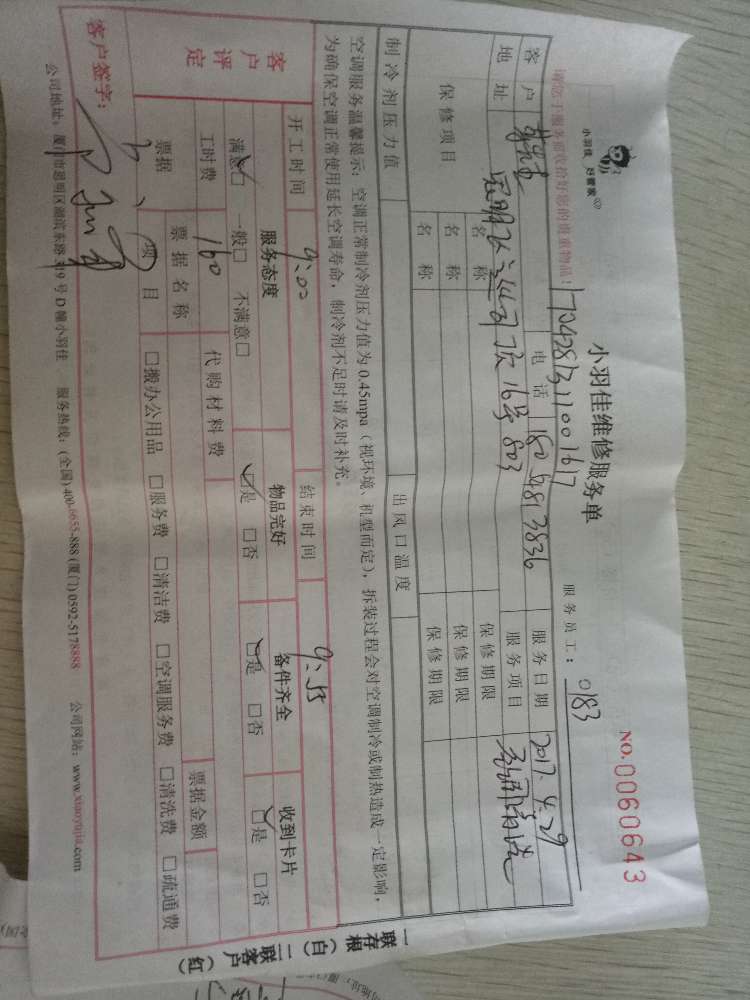 小羽佳 好管家
小羽佳维修服务单
NO.0060643
请您于服务前收拾好您的贵重物品!
1704281311001617
服务员工: 0183
客户
电话
服务日期 2017.4.29
地址 16号803
服务项目 空调清洗
保修项目
名称 保修期限
名称 保修期限
名称 保修期限
制冷剂压力值 出风口温度
空调服务温馨提示:空调正常制冷剂压力值为0.45mpa(视环境、机型而定),拆装过程会对空调制冷或制热造成一定影响,
为确保空调正常使用延长空调寿命,制冷剂不足时请及时补充。
开工时间 9:00 结束时间 9:55
客户评定
服务态度 物品完好 备件齐全 收到卡片
满意□ 一般□ 不满意□ □是 □否 □是 □否 □是 □否
工时费 160 代购材料费 票据金额
票据 票据名称
项目 □搬办公用品 □服务费 □清洁费 □空调服务费 □清洗费 □疏通费
客户签字:
公司地址:厦门市思明区湖滨东路319号D幢小羽佳 服务热线:(全国)400-6655-888 (厦门)0592-5178888 公司网站:www.xiaoyujia.com
一联存根(白) 二联客户(红)